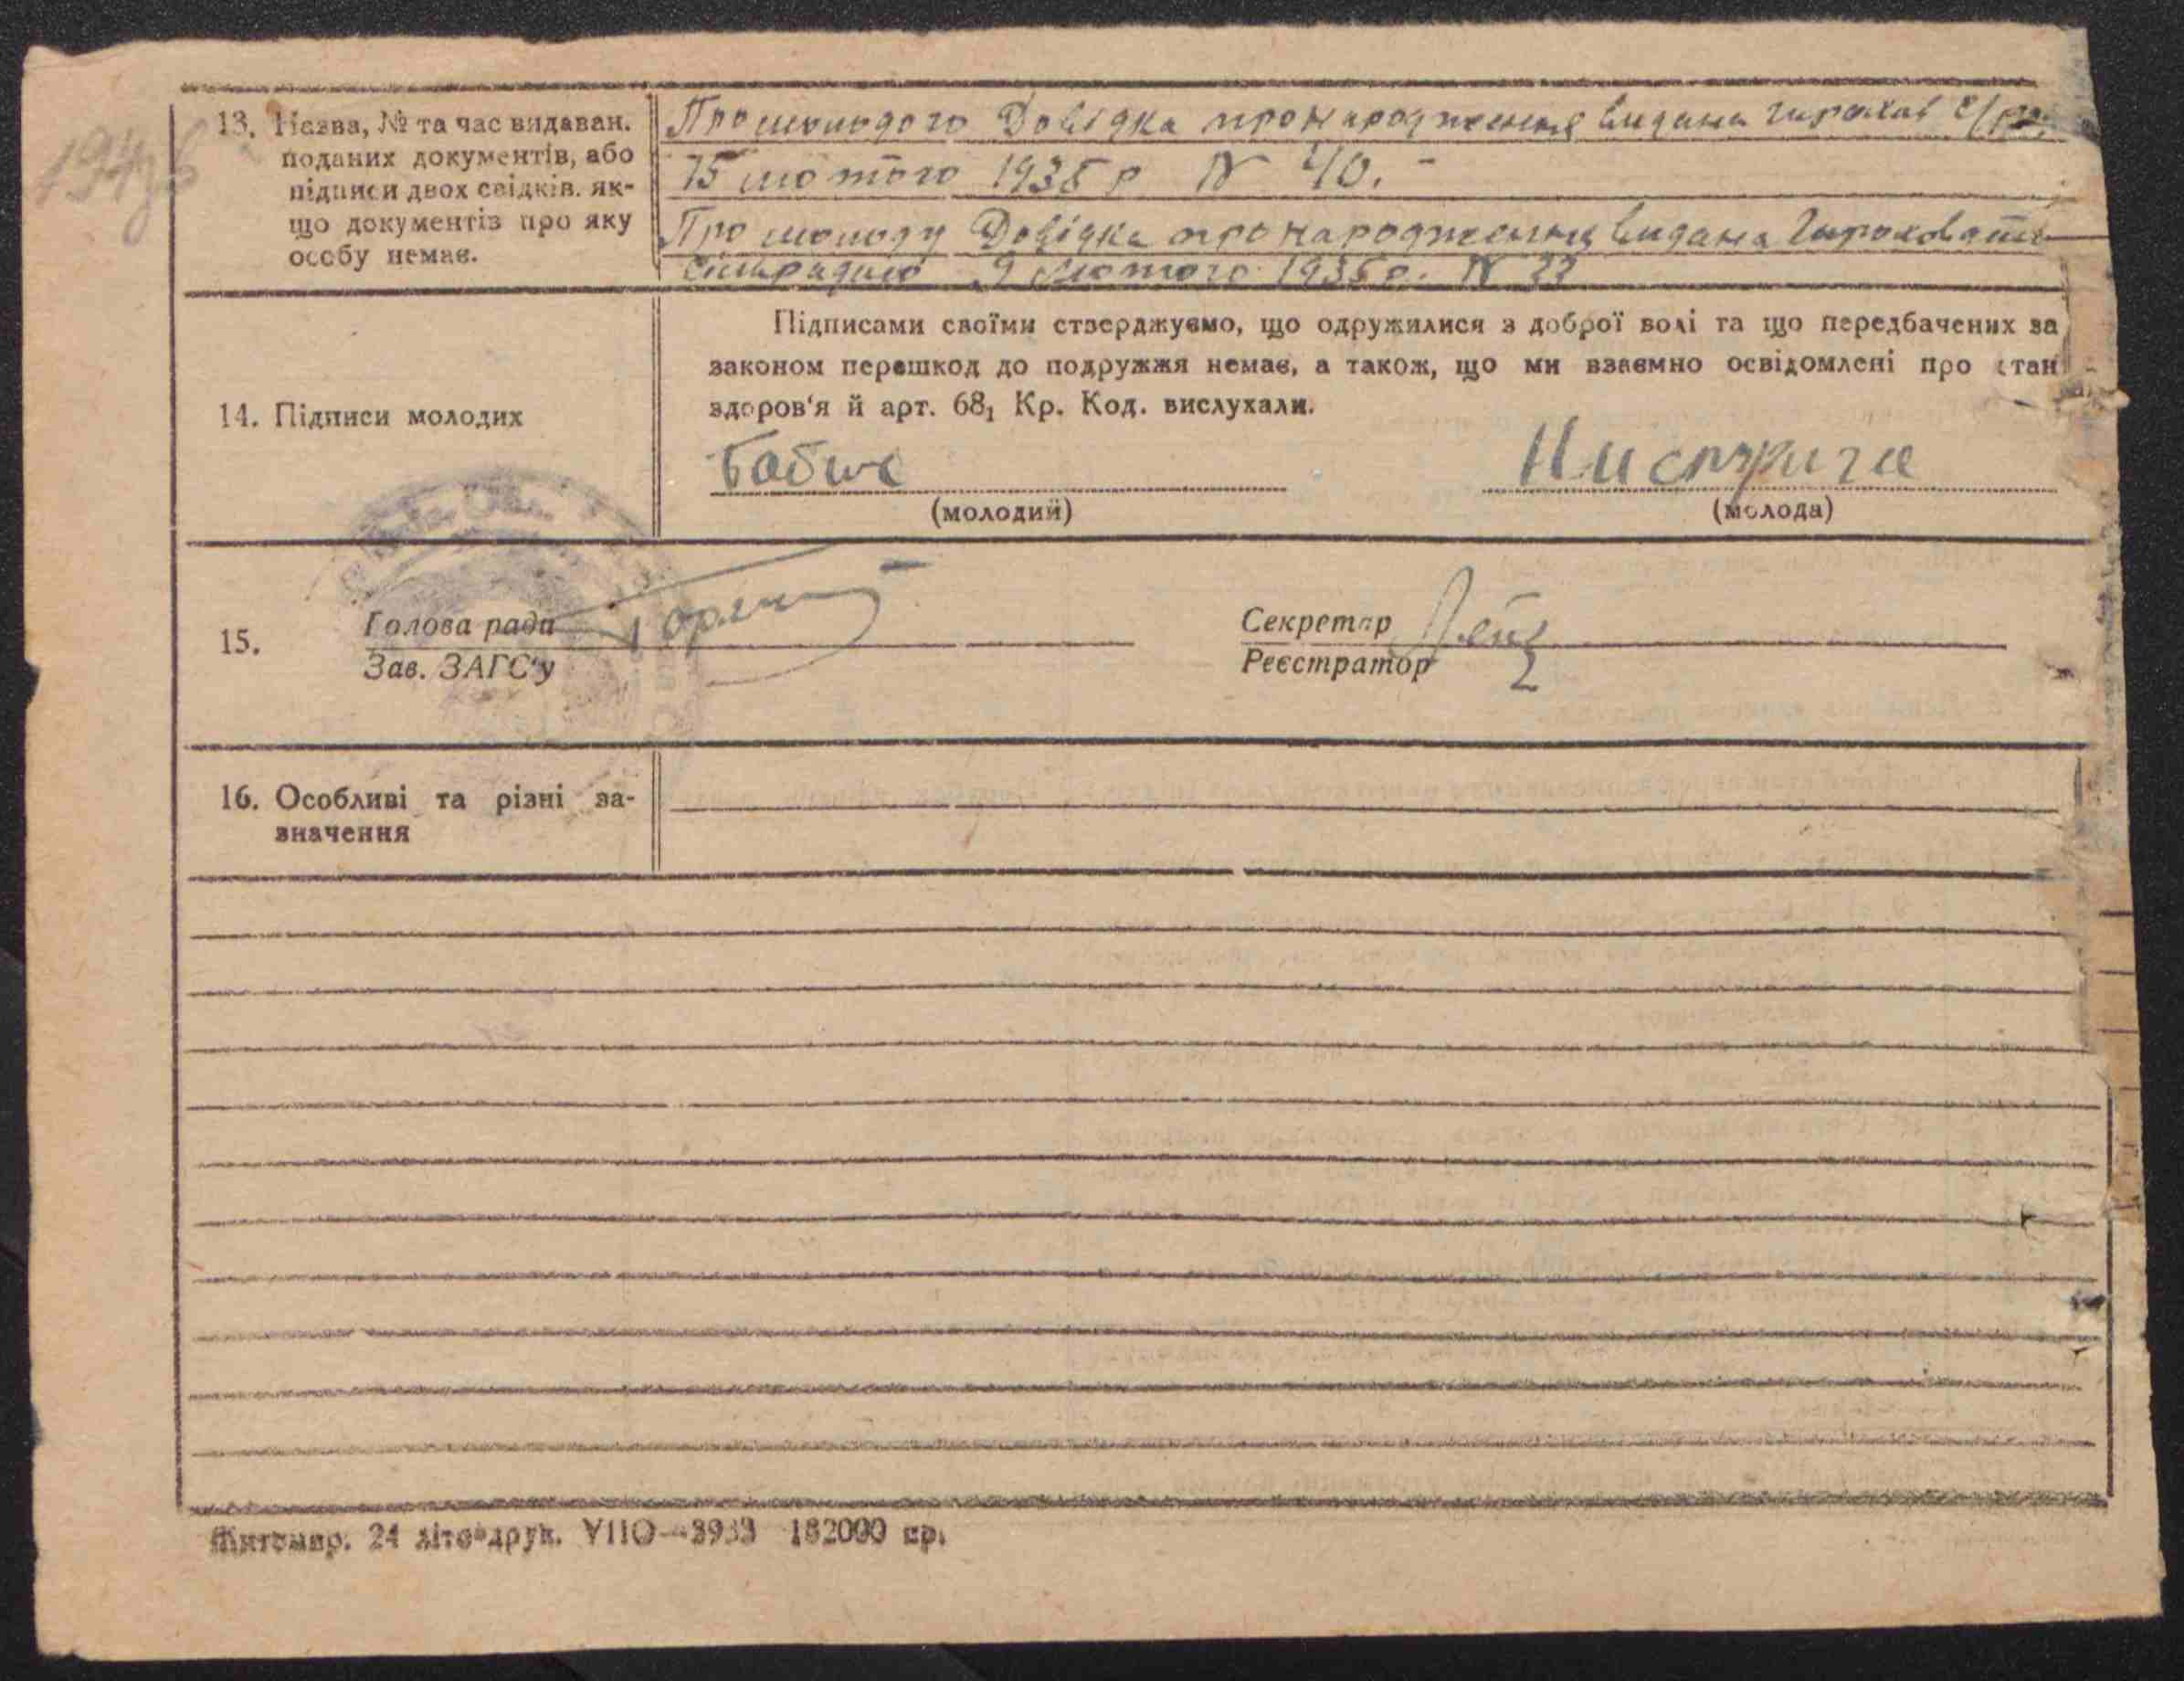 13. Назва, № та час видаван. поданих документів, або підписи двох свідків. якщо документів про яку особу немає.
Про молодого Довідка про народження видана
15 лютого 1935 р N 40.
Про молоду Довідка про народження видана
сільрадою 9 лютого 1935 р. N 33
14. Підписи молодих
Підписами своїми стверджуємо, що одружилися з доброї волі та що передбачених за
законом перешкод до подружжя немає, а також, що ми взаємно освідомлені про стан
здоров'я й арт. 68₁ Кр. Код. вислухали.
(молодий)
(молода)
15.
Голова ради
Зав. ЗАГС'у
Секретар
Реєстратор
16. Особливі та різні зазначення
Житомир. 24 літо-друк. УПО—3933 182000 пр.